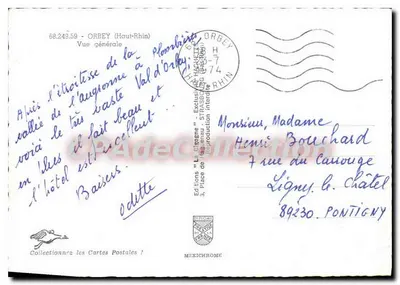 68.249.59 - ORBEY (Haut-Rhin)
Vue générale
68 ORBEY
18 H
-7
1974
HAUT-RHIN
Après l'étroitesse de la
vallée de l'augronne à Plombières
voici le très vaste Val d'Orbey,
en plus il fait beau et
l'hôtel est excellent...
Baisers.
Odette
Editions "La Cigogne"
3, Place de
STRASBOURG
Reproduction interdite
Monsieur, Madame
Henri Bouchard
7 rue du Carrouge
Ligny le Châtel
89230 - PONTIGNY
Collectionnez les Cartes Postales !
MEXICHROME